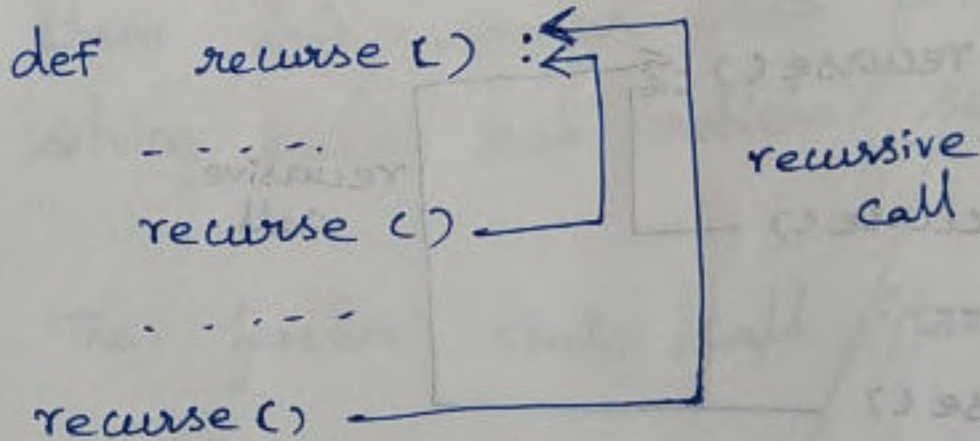 def recurse () :
- - - - -
recurse ()
- - - - -
recurse ()
recursive
call